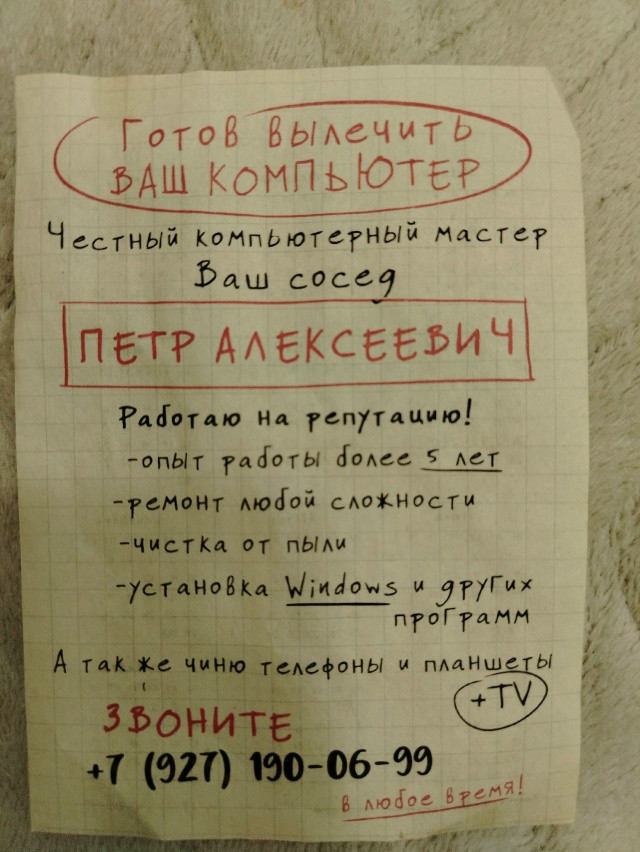 Готов вылечить
ВАШ КОМПЬЮТЕР
Честный компьютерный мастер
Ваш сосед
ПЕТР АЛЕКСЕЕВИЧ
Работаю на репутацию!
-опыт работы более 5 лет
-ремонт любой сложности
-чистка от пыли
-установка Windows и других
программ
А так же чиню телефоны и планшеты
+TV
ЗВОНИТЕ
+7 (927) 190-06-99
в любое время!